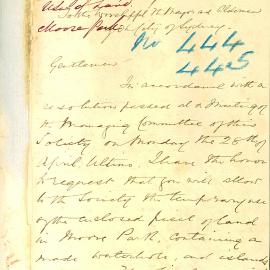 Use of Land
To the Worshipful the Mayor and Aldermen
Moore Park City of Sydney
No 444
445
Gentlemen
In accordance with a
resolution passed at a Meeting of
the Managing Committee of this
Society on Monday the 28th of
April Ultimo, I have the honor
to request that you will allow
to the Society the temporary use
of the enclosed piece of land
in Moore Park, containing a
made waterhole, and islands